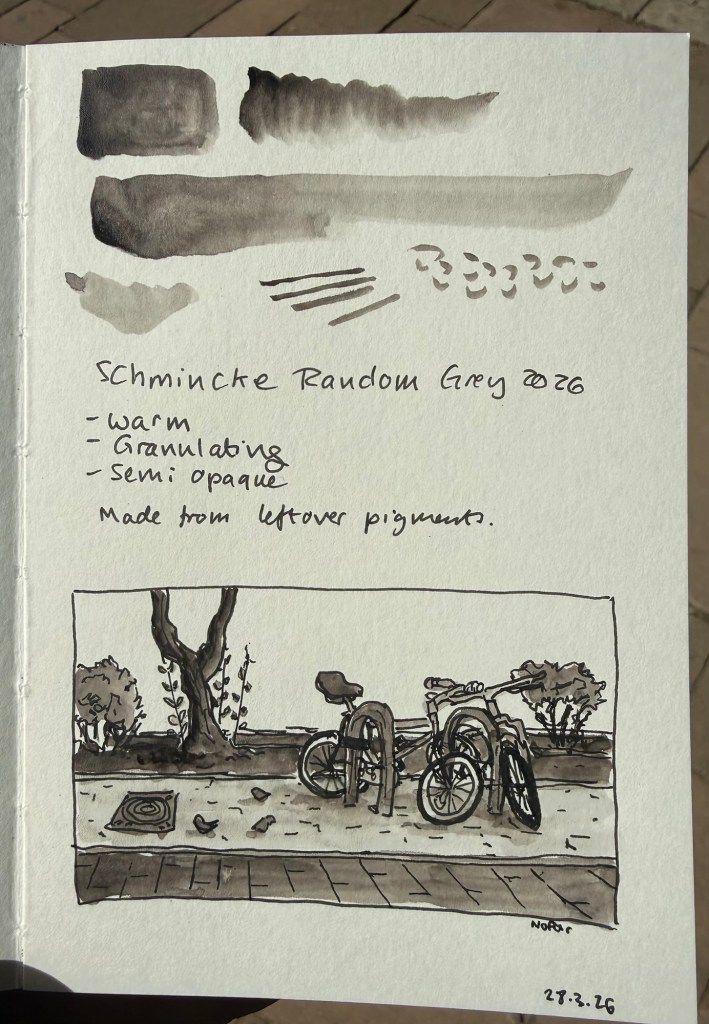 Schmincke Random Grey 2026
- warm
- Granulating
- Semi opaque
Made from leftover pigments.
Nofar
28.3.26